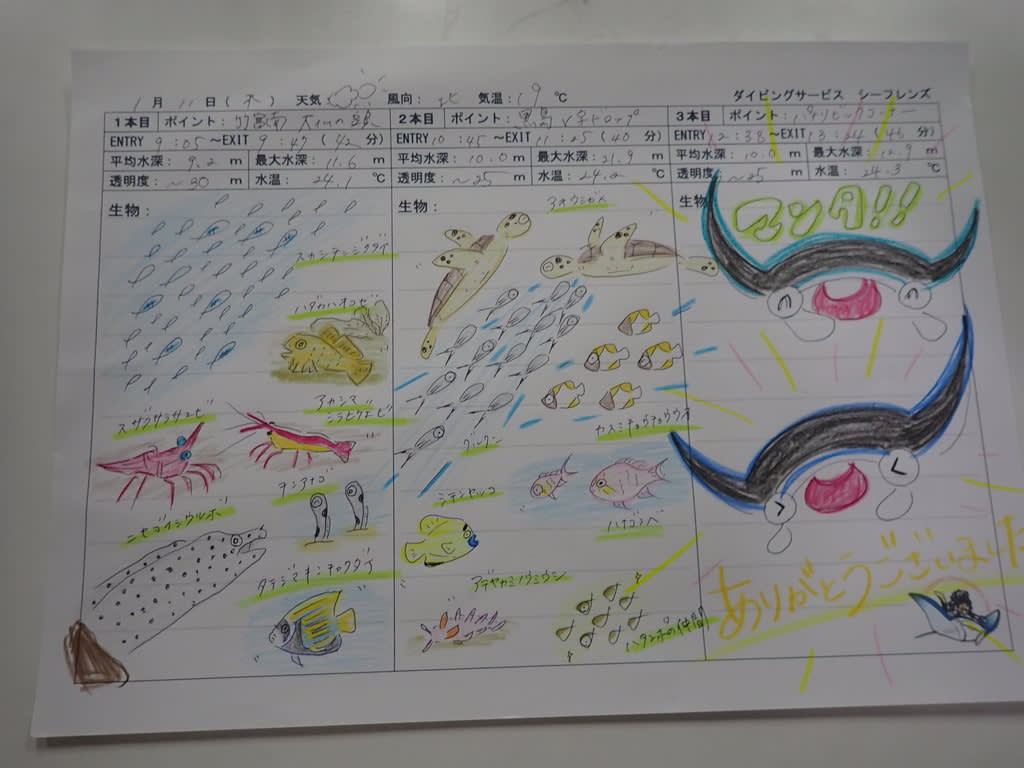 1月 11日(木) 天気: 風向: 北 気温: 19 ℃ ダイビングサービス シーフレンズ
1本目 ポイント: 竹富南
ENTRY 9:05 ~EXIT 9:47 (42 分)
平均水深: 9.2 m 最大水深: 11.6 m
透明度: ~30 m 水温: 24.1 ℃
生物:
スカシテンジクダイ
ハダカハオコゼ
アカシマシラヒゲエビ
スザクサラサエビ
チンアナゴ
ニセゴイシウツボ
タテジマキンチャクダイ
2本目 ポイント: 黒島
ENTRY 10:45 ~EXIT 11:25 (40 分)
平均水深: 10.0 m 最大水深: 21.9 m
透明度: ~25 m 水温: 24.2 ℃
生物:
アオウミガメ
カスミチョウチョウウオ
グルクン
ハナゴンベ
ミナミハタンポの仲間
3本目 ポイント:
ENTRY 12:38 ~EXIT 13:24 (46 分)
平均水深: 10.0 m 最大水深: 12.9 m
透明度: ~25 m 水温: 24.3 ℃
生物
マンタ!!
ありがとうございました